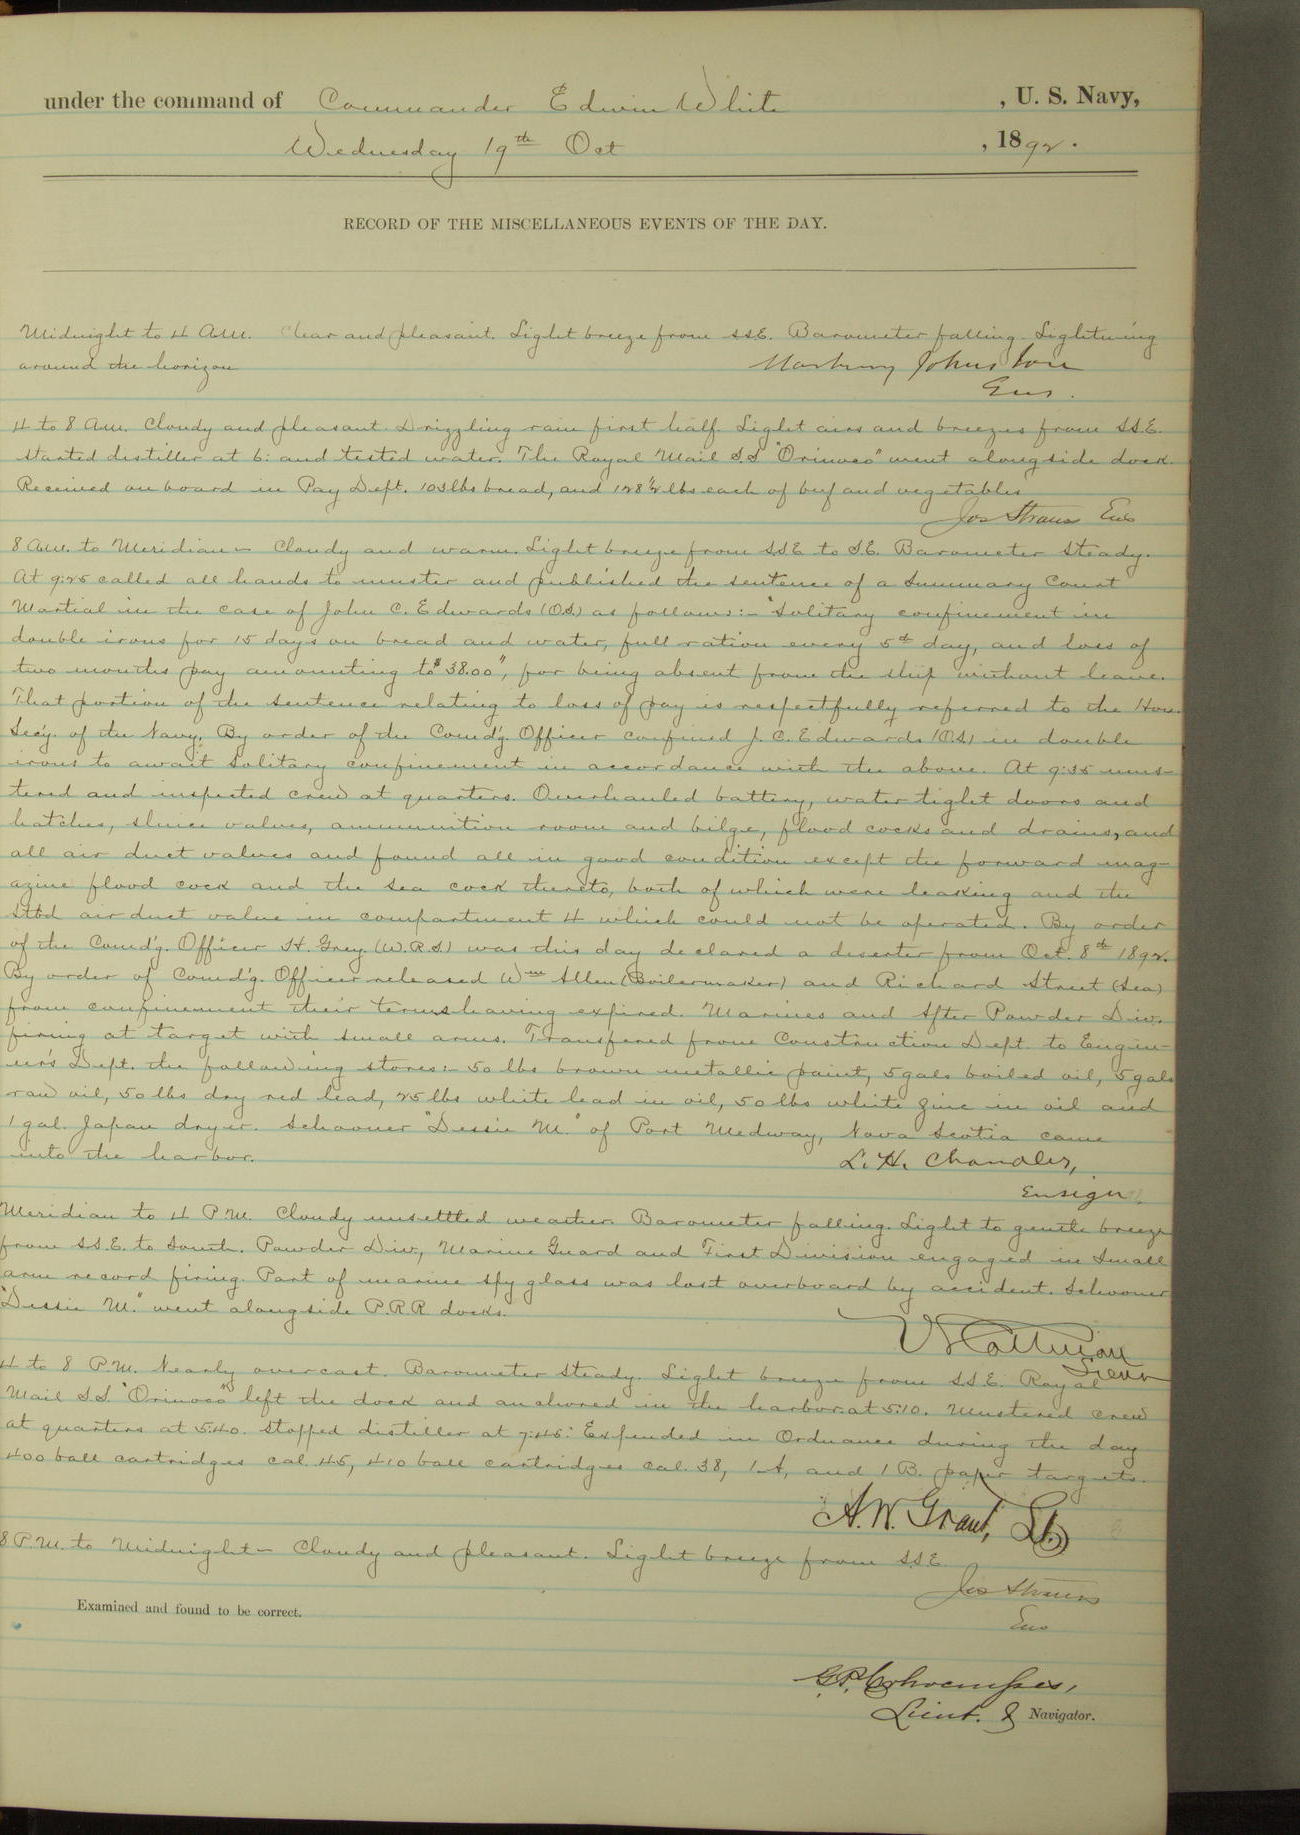 under the command of Commander Edwin White , U. S. Navy,
Wednesday 19th Oct , 1892.
RECORD OF THE MISCELLANEOUS EVENTS OF THE DAY.
Midnight to 4 A.M. Clear and pleasant. Light breeze from SSE. Barometer falling. Lightning
around the horizon
Marbury Johnston
Ens.
4 to 8 A.M. Cloudy and pleasant. Drizzling rain first half. Light airs and breezes from SSE.
Started distiller at 6: and tested water. The Royal Mail S.S "Orinoco" went alongside dock.
Received on board in Pay Dept. 103 lbs bread, and 128½ lbs each of beef and vegetables
Jos Strauss Ens
8 A.M. to Meridian – Cloudy and warm. Light breeze from SSE to SE. Barometer steady.
At 9:25 called all hands to muster and published the sentence of a Summary Court
Martial in the case of John C. Edwards (O.S.) as follows:– "Solitary confinement in
double irons for 15 days on bread and water, full ration every 5th day, and loss of
two months pay amounting to $38.00", for being absent from the ship without leave.
That portion of the sentence relating to loss of pay is respectfully referred to the Hon.
Sec'y. of the Navy. By order of the Comd'g. Officer confined J. C. Edwards (O.S.) in double
irons to await solitary confinement in accordance with the above. At 9:35 mus-
tered and inspected crew at quarters. Overhauled battery, water tight doors and
hatches, sluice valves, ammunition room and bilge, flood cocks and drains, and
all air duct valves and found all in good condition except the forward mag-
azine flood cock and the sea cock thereto, both of which were leaking and the
Stbd air duct valve in compartment 4 which could not be operated. By order
of the Comd'g. Officer H. Grey (W.R.S.) was this day declared a deserter from Oct. 8th 1892.
By order of Comd'g. Officer released Wm Allen (Boilermaker) and Richard Street (Sea)
from confinement their terms having expired. Marines and After Powder Div.
firing at target with small arms. Transfered from Construction Dept. to Engin-
eer's Dept. the following stores:– 50 lbs brown metallic paint, 5 gals boiled oil, 5 gals
raw oil, 50 lbs dry red lead, 25 lbs white lead in oil, 50 lbs white zinc in oil and
1 gal. Japan dryer. Schooner "Dessie M." of Port Medway, Nova Scotia came
into the harbor.
L. H. Chandler,
Ensign
Meridian to 4 P.M. Cloudy unsettled weather. Barometer falling. Light to gentle breeze
from SS.E. to South. Powder Div., Marine Guard and First Division engaged in small
arm record firing. Part of marine spy glass was lost overboard by accident. Schooner
"Dessie M." went alongside P.R.R docks.
Lieut
4 to 8 P.M. Nearly overcast. Barometer steady. Light breeze from S.S.E. Royal
Mail S.S. "Orinoco" left the dock and anchored in the harbor at 5:10. Mustered crew
at quarters at 5:40. Stopped distiller at 7:45: Expended in Ordnance during the day
400 ball cartridges cal. 45, 410 ball cartridges cal. 38, 1 A, and 1 B. paper targets.
A. W. Grant, Lt.
8 P.M. to Midnight – Cloudy and pleasant. Light breeze from S.S.E.
Jos Strauss
Ens
Examined and found to be correct.
Lieut. & Navigator.